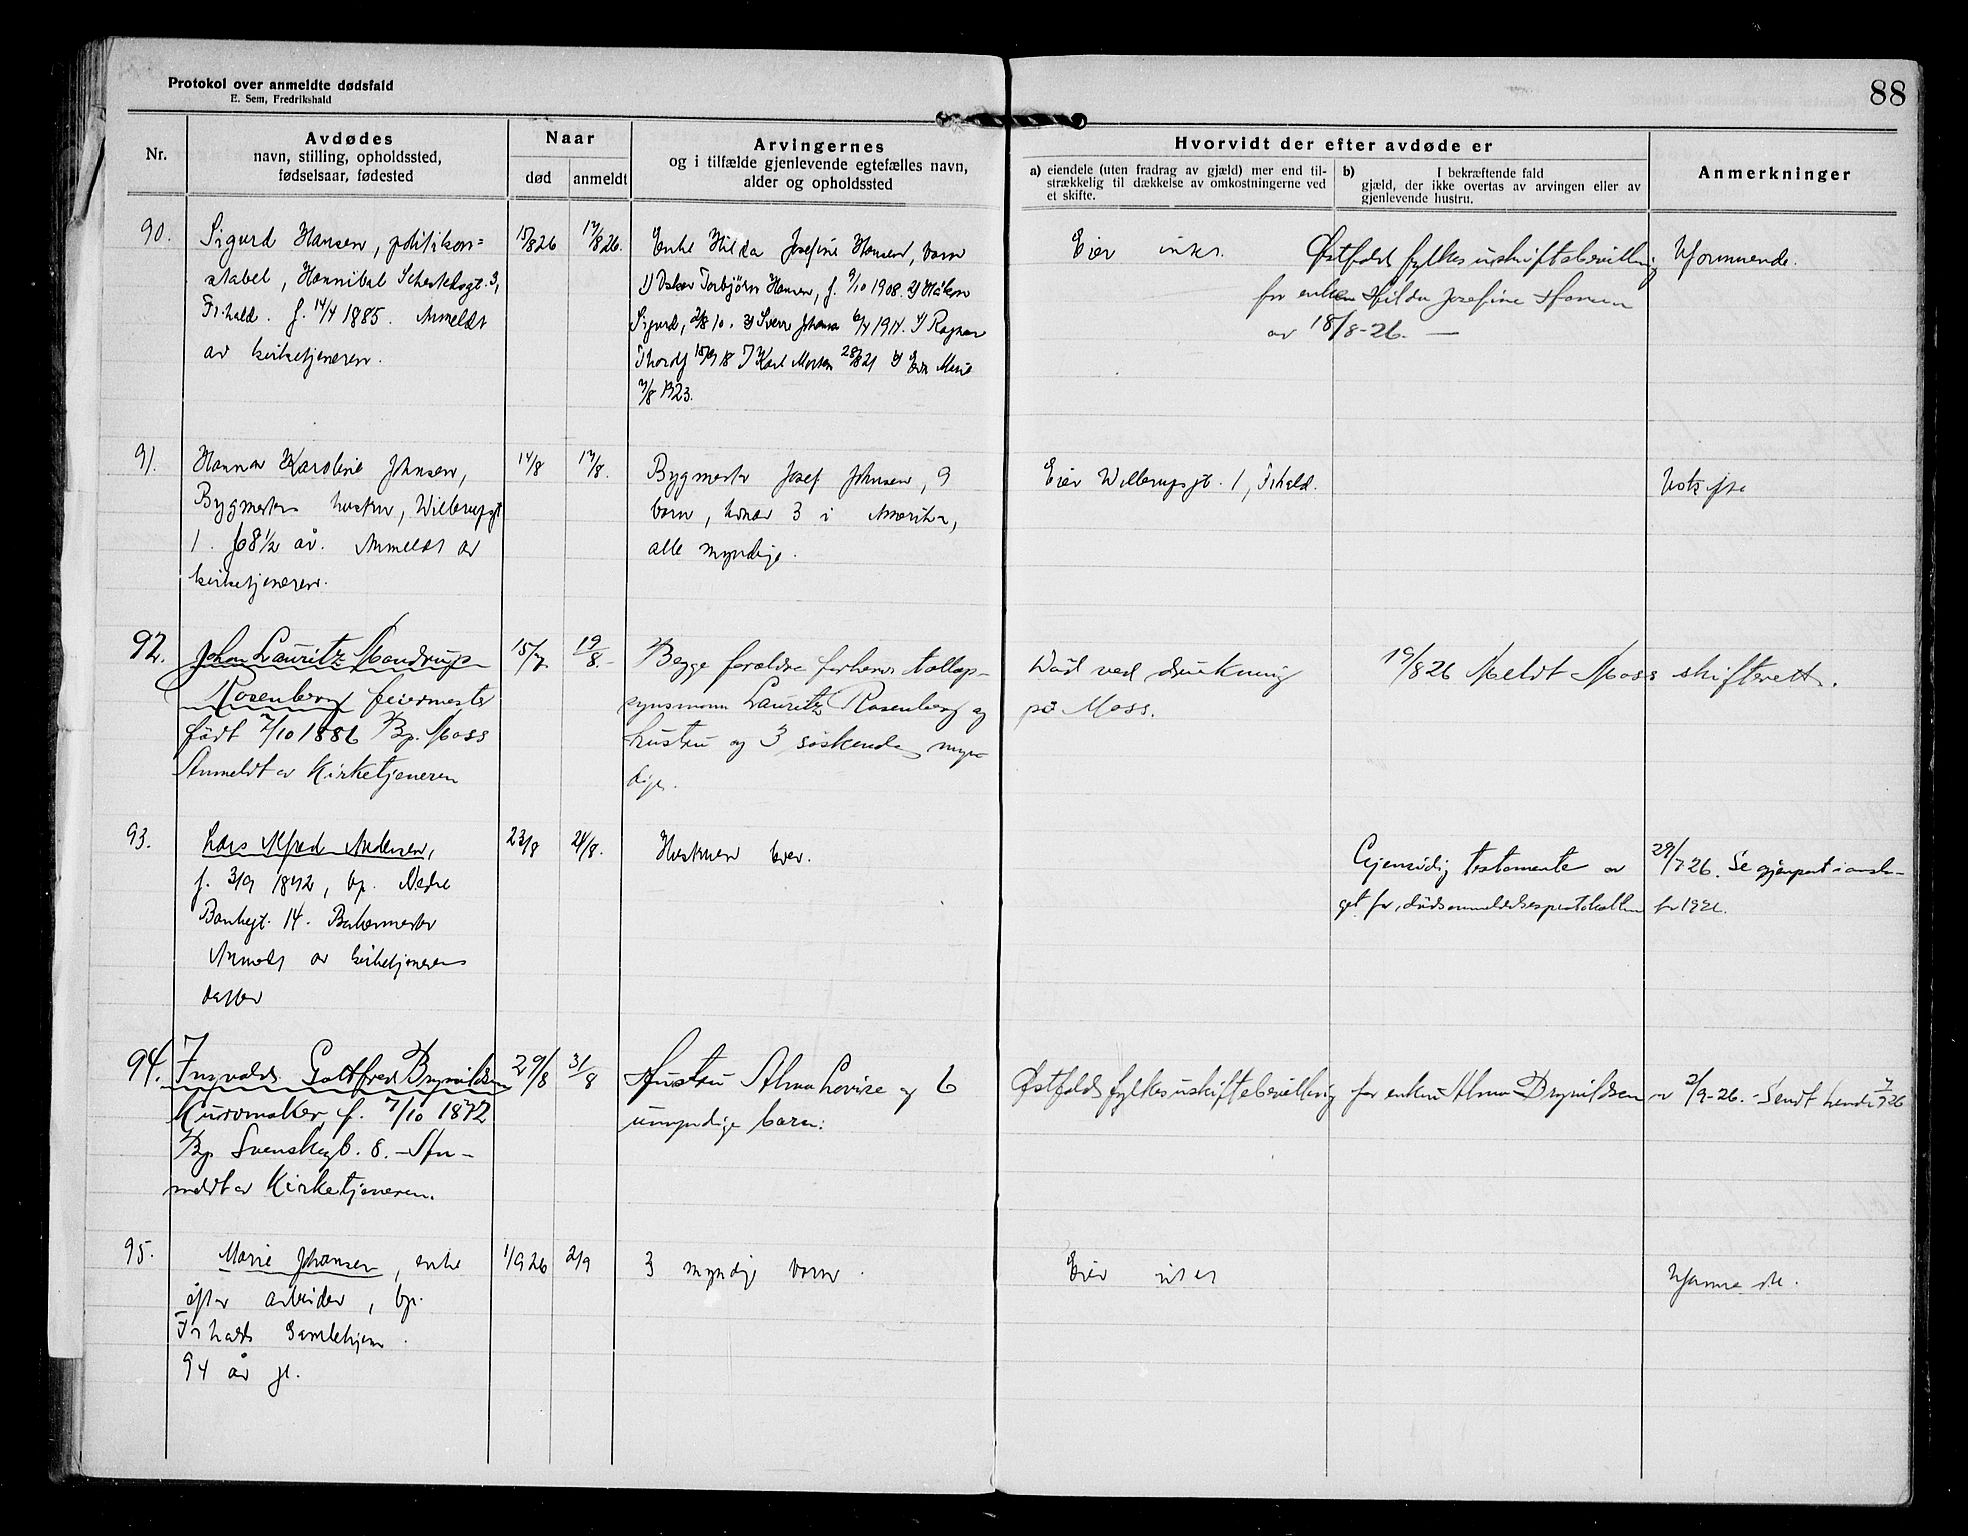 Protokol over anmeldte dødsfald
E. Sem, Fredrikshald
88
Nr.
Avdødes
navn, stilling, opholdssted,
fødselsaar, fødested
Naar
død
anmeldt
Arvingernes
og i tilfælde gjenlevende egtefælles navn,
alder og opholdssted
Hvorvidt der efter avdøde er
a) eiendele (uten fradrag av gjæld) mer end til-
strækkelig til dækkelse av omkostningerne ved
et skifte.
b) I bekræftende fald
gjæld, der ikke overtas av arvingen eller av
gjenlevende hustru.
Anmerkninger
90.
Sigurd Hansen, politikon=
stabel, Hannibal Sehestedsgt. 3,
Fr.hald. f. 14/4 1885. Anmeldt
av kirketjeneren.
15/8 26
17/8 26.
Enke Hilda Josefine Hansen, barn
1) Oskar Torbjørn Hansen, f. 9/10 1908. 2) Håkon
Sigurd, 2/8 10. 3) Sverr Johan 6/4 1914. 4) Ragnar
Thordf 15/9 18 5) Karl Morten 28/8 21 6) Eva Marie
7/8 1923.
Eier intet.
Østfold fylkes uskiftebevilling
for enken Hilda Josefine Hansen
av 18/8-26. —
Uformuende.
91.
Hanna Karoline Johnsen,
Bygmesters hustru, Willerupsgt
1. 68 1/2 år. Anmeldt av
kirketjeneren.
14/8
17/8.
Bygmester Josef Johnsen, 9
barn, hvorav 3 i Amerika,
alle myndige.
Eier Willerupsgt. 1, Fr.hald.
Uskifte
92.
Johan Lauritz Mandrup
Rosenberg feiermester
født 7/10 1886 Bp. Moss
Anmeldt av Kirketjeneren
15/7
19/8.-
Begge forældre forhenv. tollop-
synsmann Lauritz Rosenberg og
hustru og 3 søskende, myn-
dige.
Død ved drukning
på Moss.
19/8 26 Meldt Moss skifterett.
93.
Lars Alfred Andersen,
f. 3/9 1842, bp. Nedre
Bankegt. 14. Bakermester
Anmeldt av kirketjenerens
datter
23/8
24/8.
Hustruen lever.
Gjensidig testamente av 29/7 26. Se gjenpart i omsla-
get for dødsanmeldelsesprotokollen for 1921.
94.
Ingvald Gottfred Brynildsen
Kurvmaker, f. 7/10 1872
Bp Svenskegt. 8. - An-
meldt av Kirketjeneren.
29/8
31/8
Hustru Alma Lovise og 6
umyndige barn.
Østfolds fylkes uskiftebevilling for enken Alma Brynildsen av 2/9-26. - Sendt hende 7/9 26
95.
Marie Johansen, enke
efter arbeider, bp.
Fr.halds Gamlehjem.
94 år gl.
1/9 26
2/9
3 myndige barn.
Eier intet